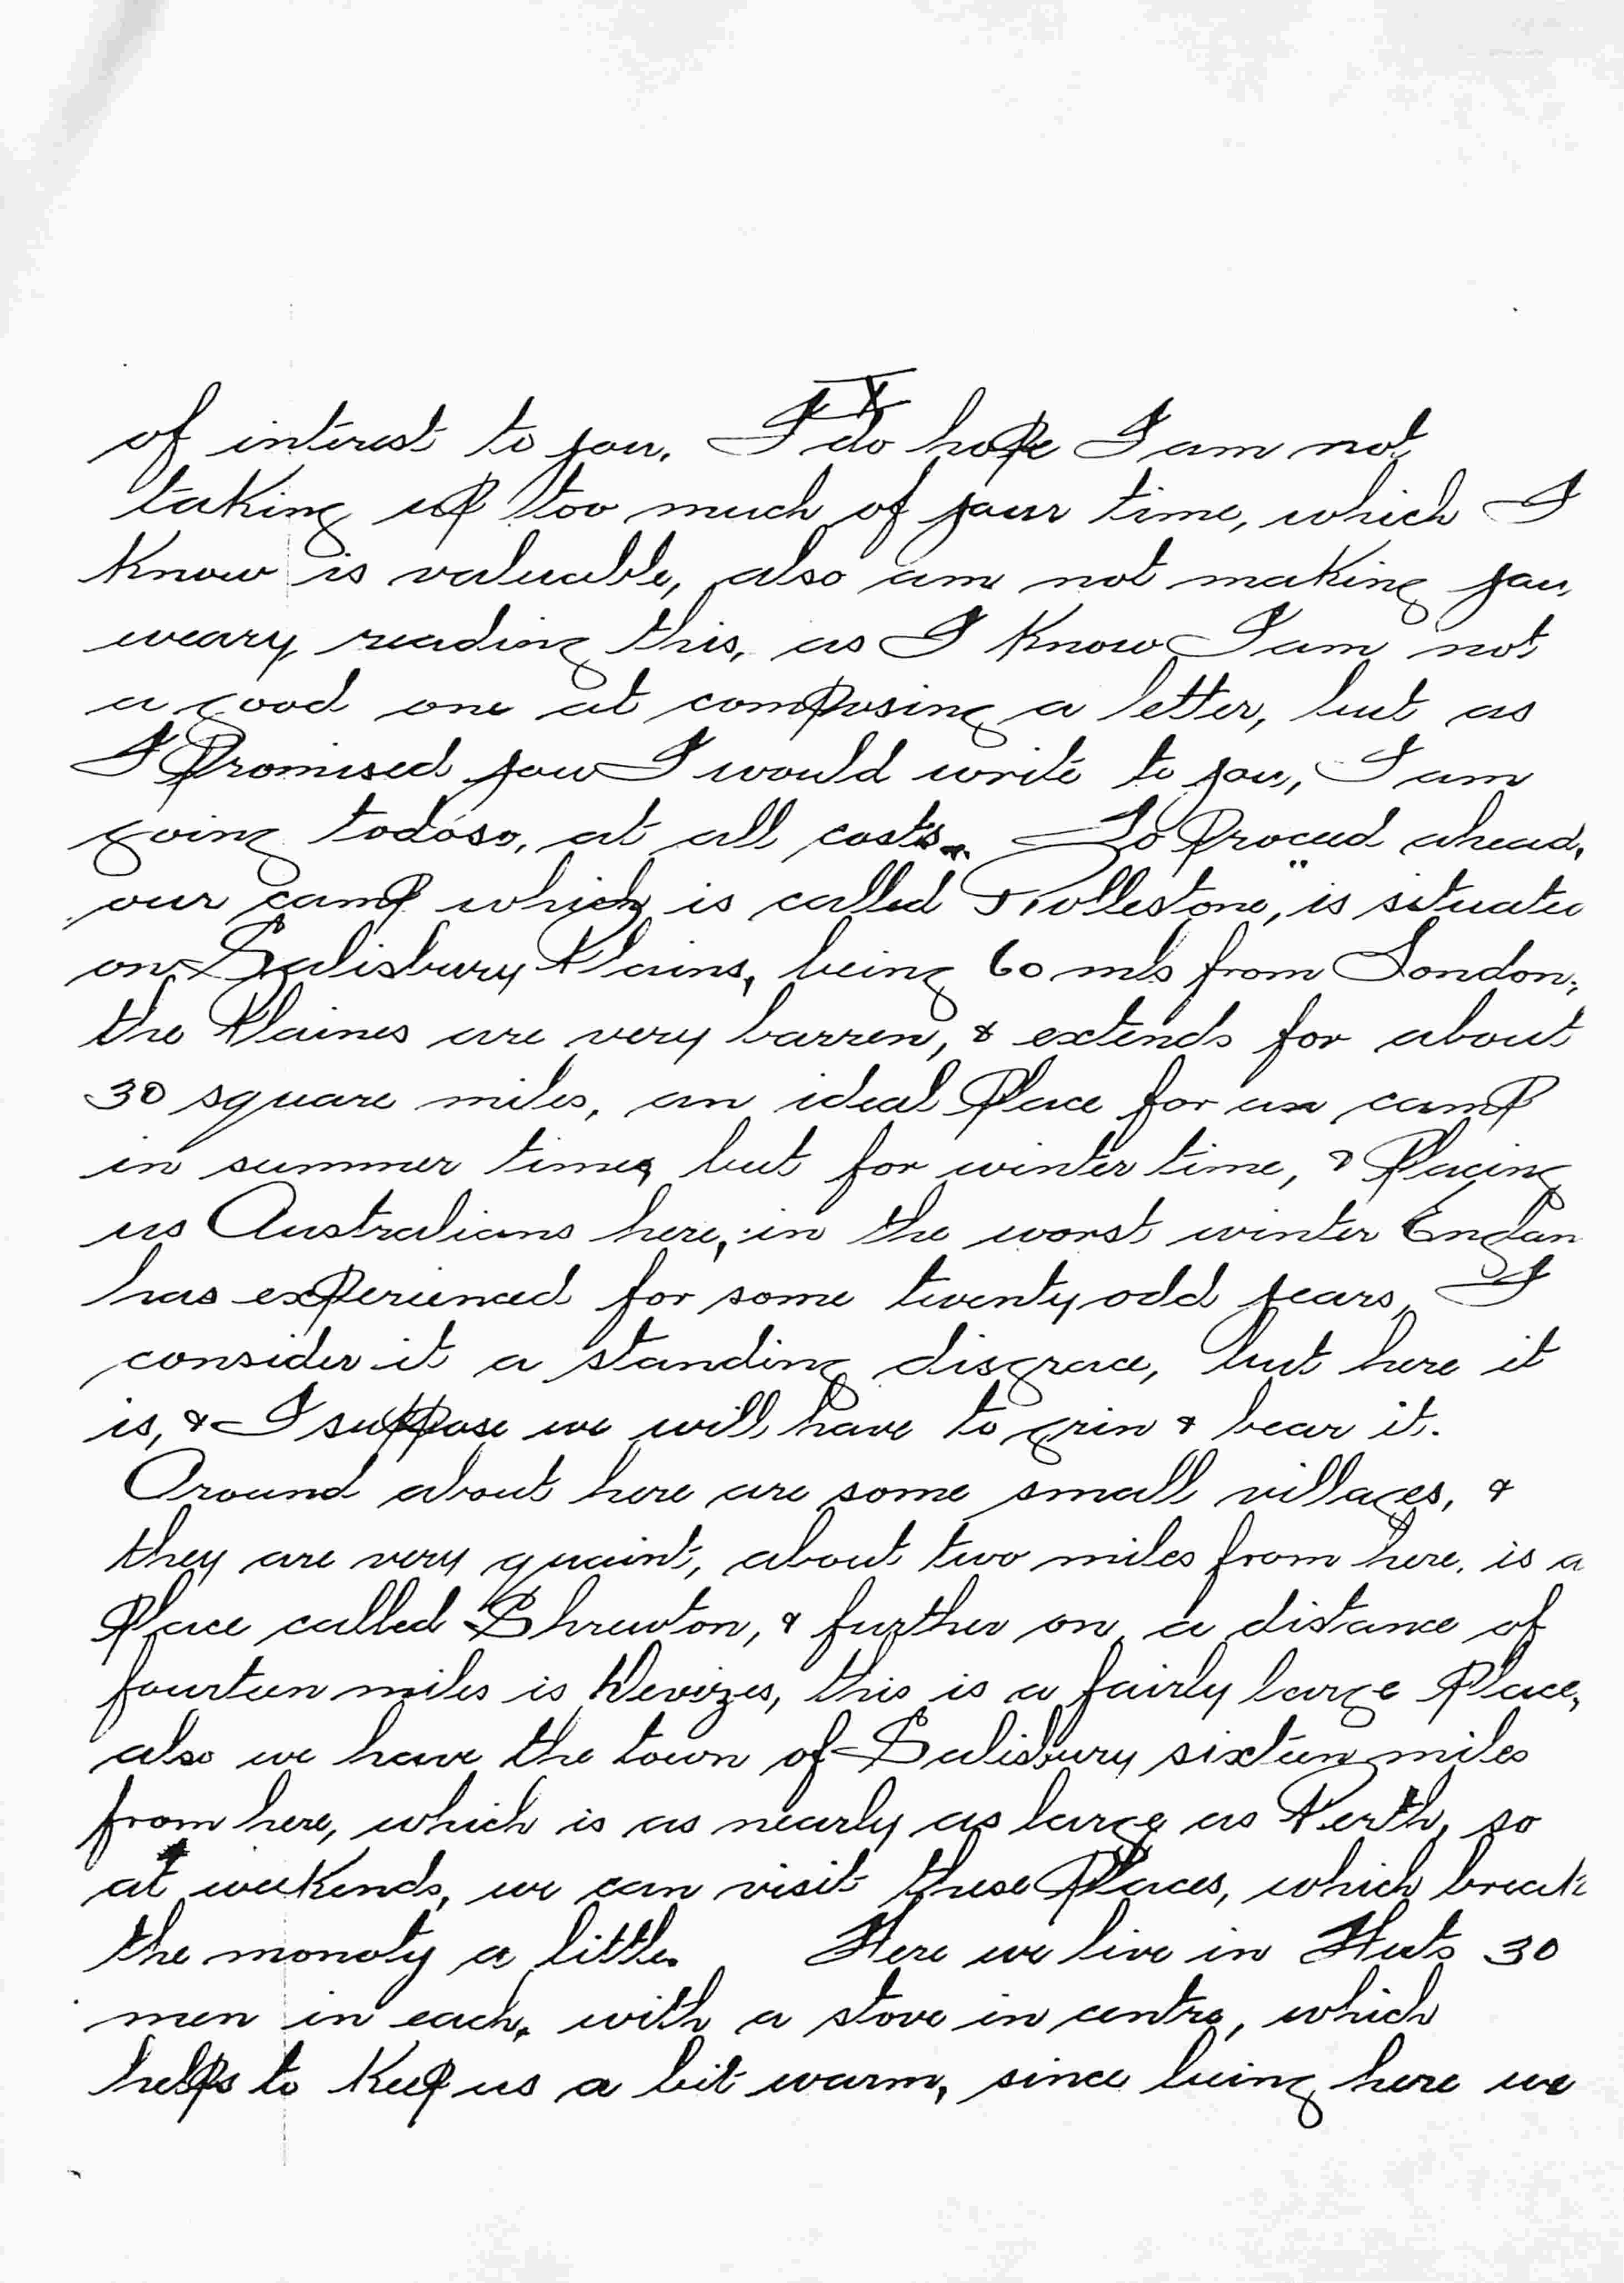 X
of interest to you. I do hope I am not
taking up too much of your time, which I
know is valuable, also am not making you
weary reading this, as I know I am not
a good one at composing a letter, but as
I Promised you I would write to you, I am
going todoso, at all costs. To Proceed ahead,
our camp which is called "Rollestone," is situated
on Salisbury Plains, being 60 mls from London,
the Plaines are very barren, & extends for about
30 square miles, an ideal Place for a camp
in summer time, but for winter time, & Placing
us Australians here, in the worst winter Englan
has experienced for some twenty odd years, I
consider it a standing disgrace, but here it
is, & I suppose we will have to grin & bear it.
Around about here are some small villages, &
they are very quaint, about two miles from here, is a
Place called Shrewton, & further on, a distance of
fourteen miles is Devizes, this is a fairly large Place,
also we have the town of Salisbury sixteen miles
from here, which is as nearly as large as Perth, so
at weekends, we can visit these Places, which break
the monoty a little. Here we live in Huts 30
men in each, with a stove in centre, which
helps to keep us a bit warm, since being here we